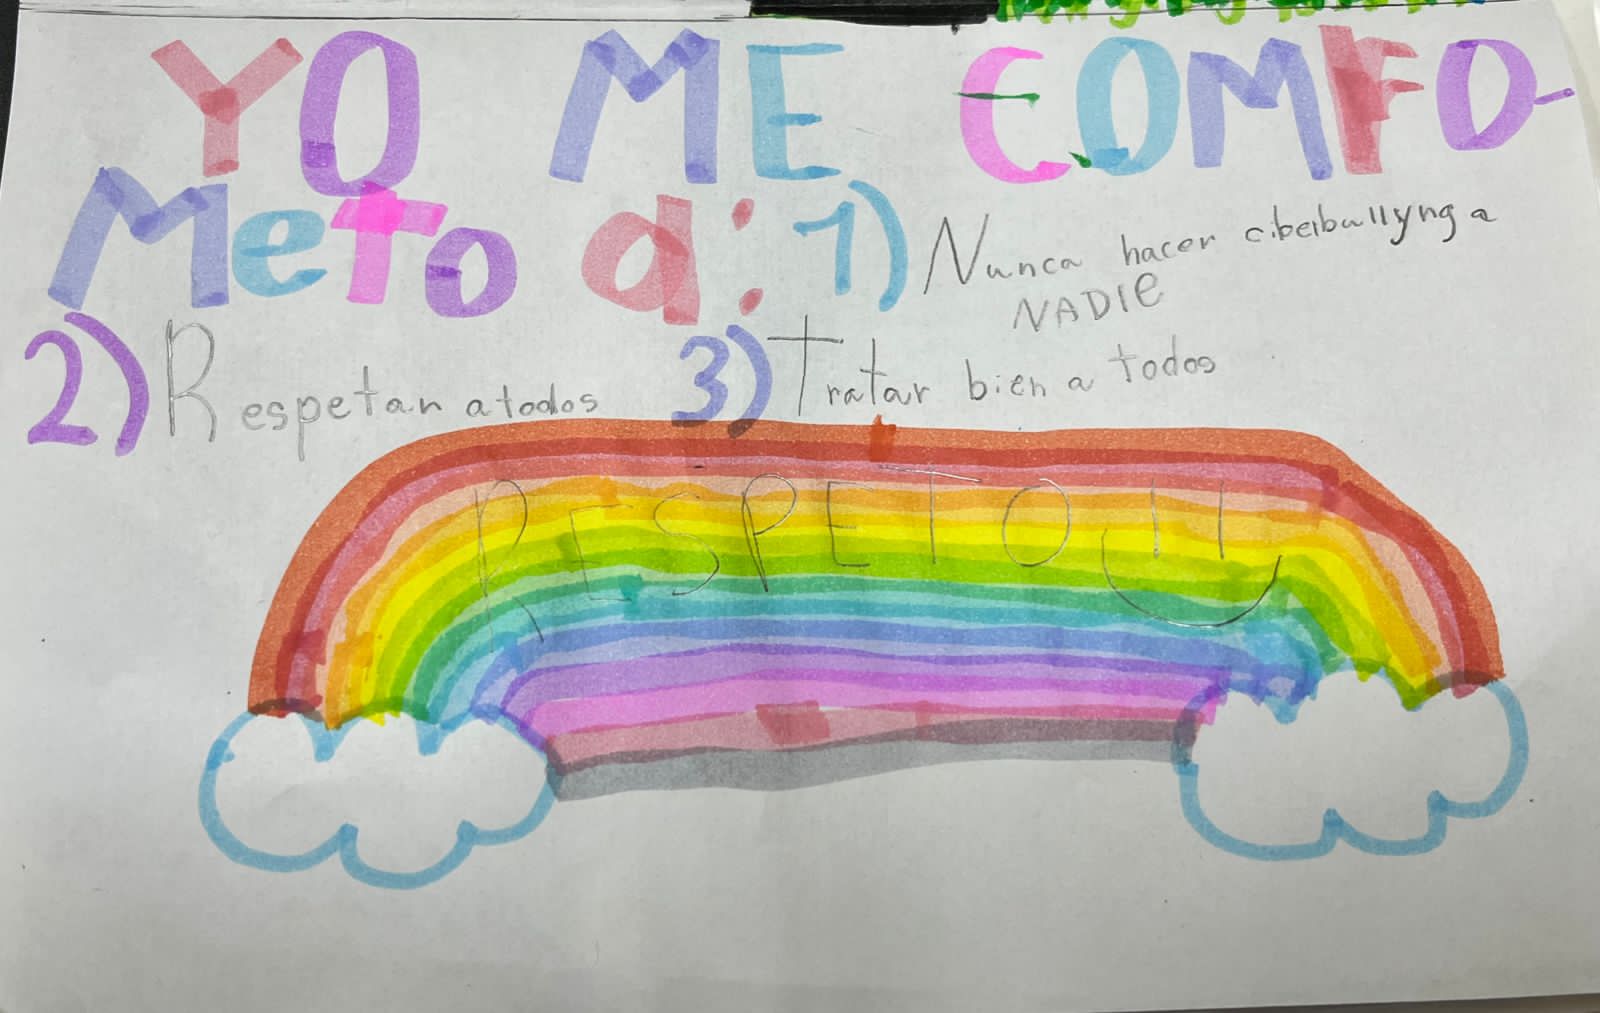 YO ME COMFO-
Meto a: 1) Nunca hacer ciberbullyng a
NADIE
2) Respetan a todos 3) Tratar bien a todos
RESPETO